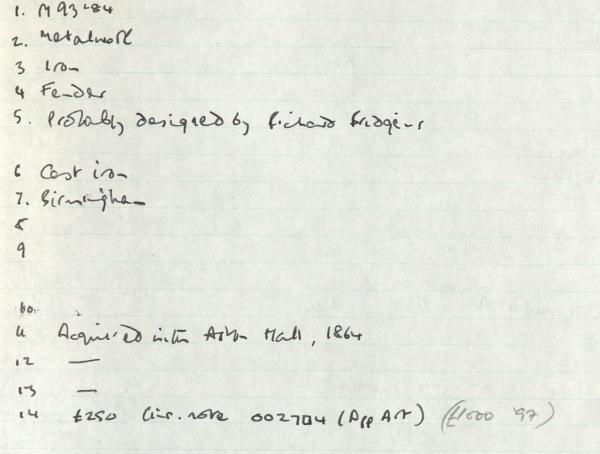 1. M 93-'84
2. Metalwork
3 Iron
4 Fender
5. Probably designed by Richard Bridgens
6 Cast iron
7. Birmingham
8
9
10.
11 Acquired with Aston Hall, 1864
12 —
13 —
14 £250 Ins. note 002704 (App Art) (£1500 '97)